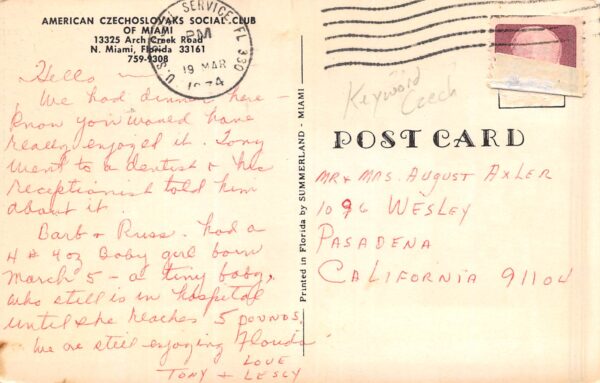 AMERICAN CZECHOSLOVAKS SOCIAL CLUB
OF MIAMI
13325 Arch Creek Road
N. Miami, Florida 33161
759-9308
U.S. SERVICE, FL 330
PM
19 MAR
1974
Hello
We had dinner here -
know you would have
really enjoyed it. Tony
went to a dentist & his
receptionist told him
about it.
Barb & Russ. had a
4 # 4 oz Baby girl born
March 5 - a tiny baby,
who still is in hospital
until she reaches 5 POUNDS.
We are still enjoying Florida
LOVE
TONY & LESCY
Printed in Florida by SUMMERLAND - MIAMI
Keyword
Czech
POST CARD
MR & MRS. AUGUST AXLER
1096 WESLEY
PASADENA
CALIFORNIA 91104